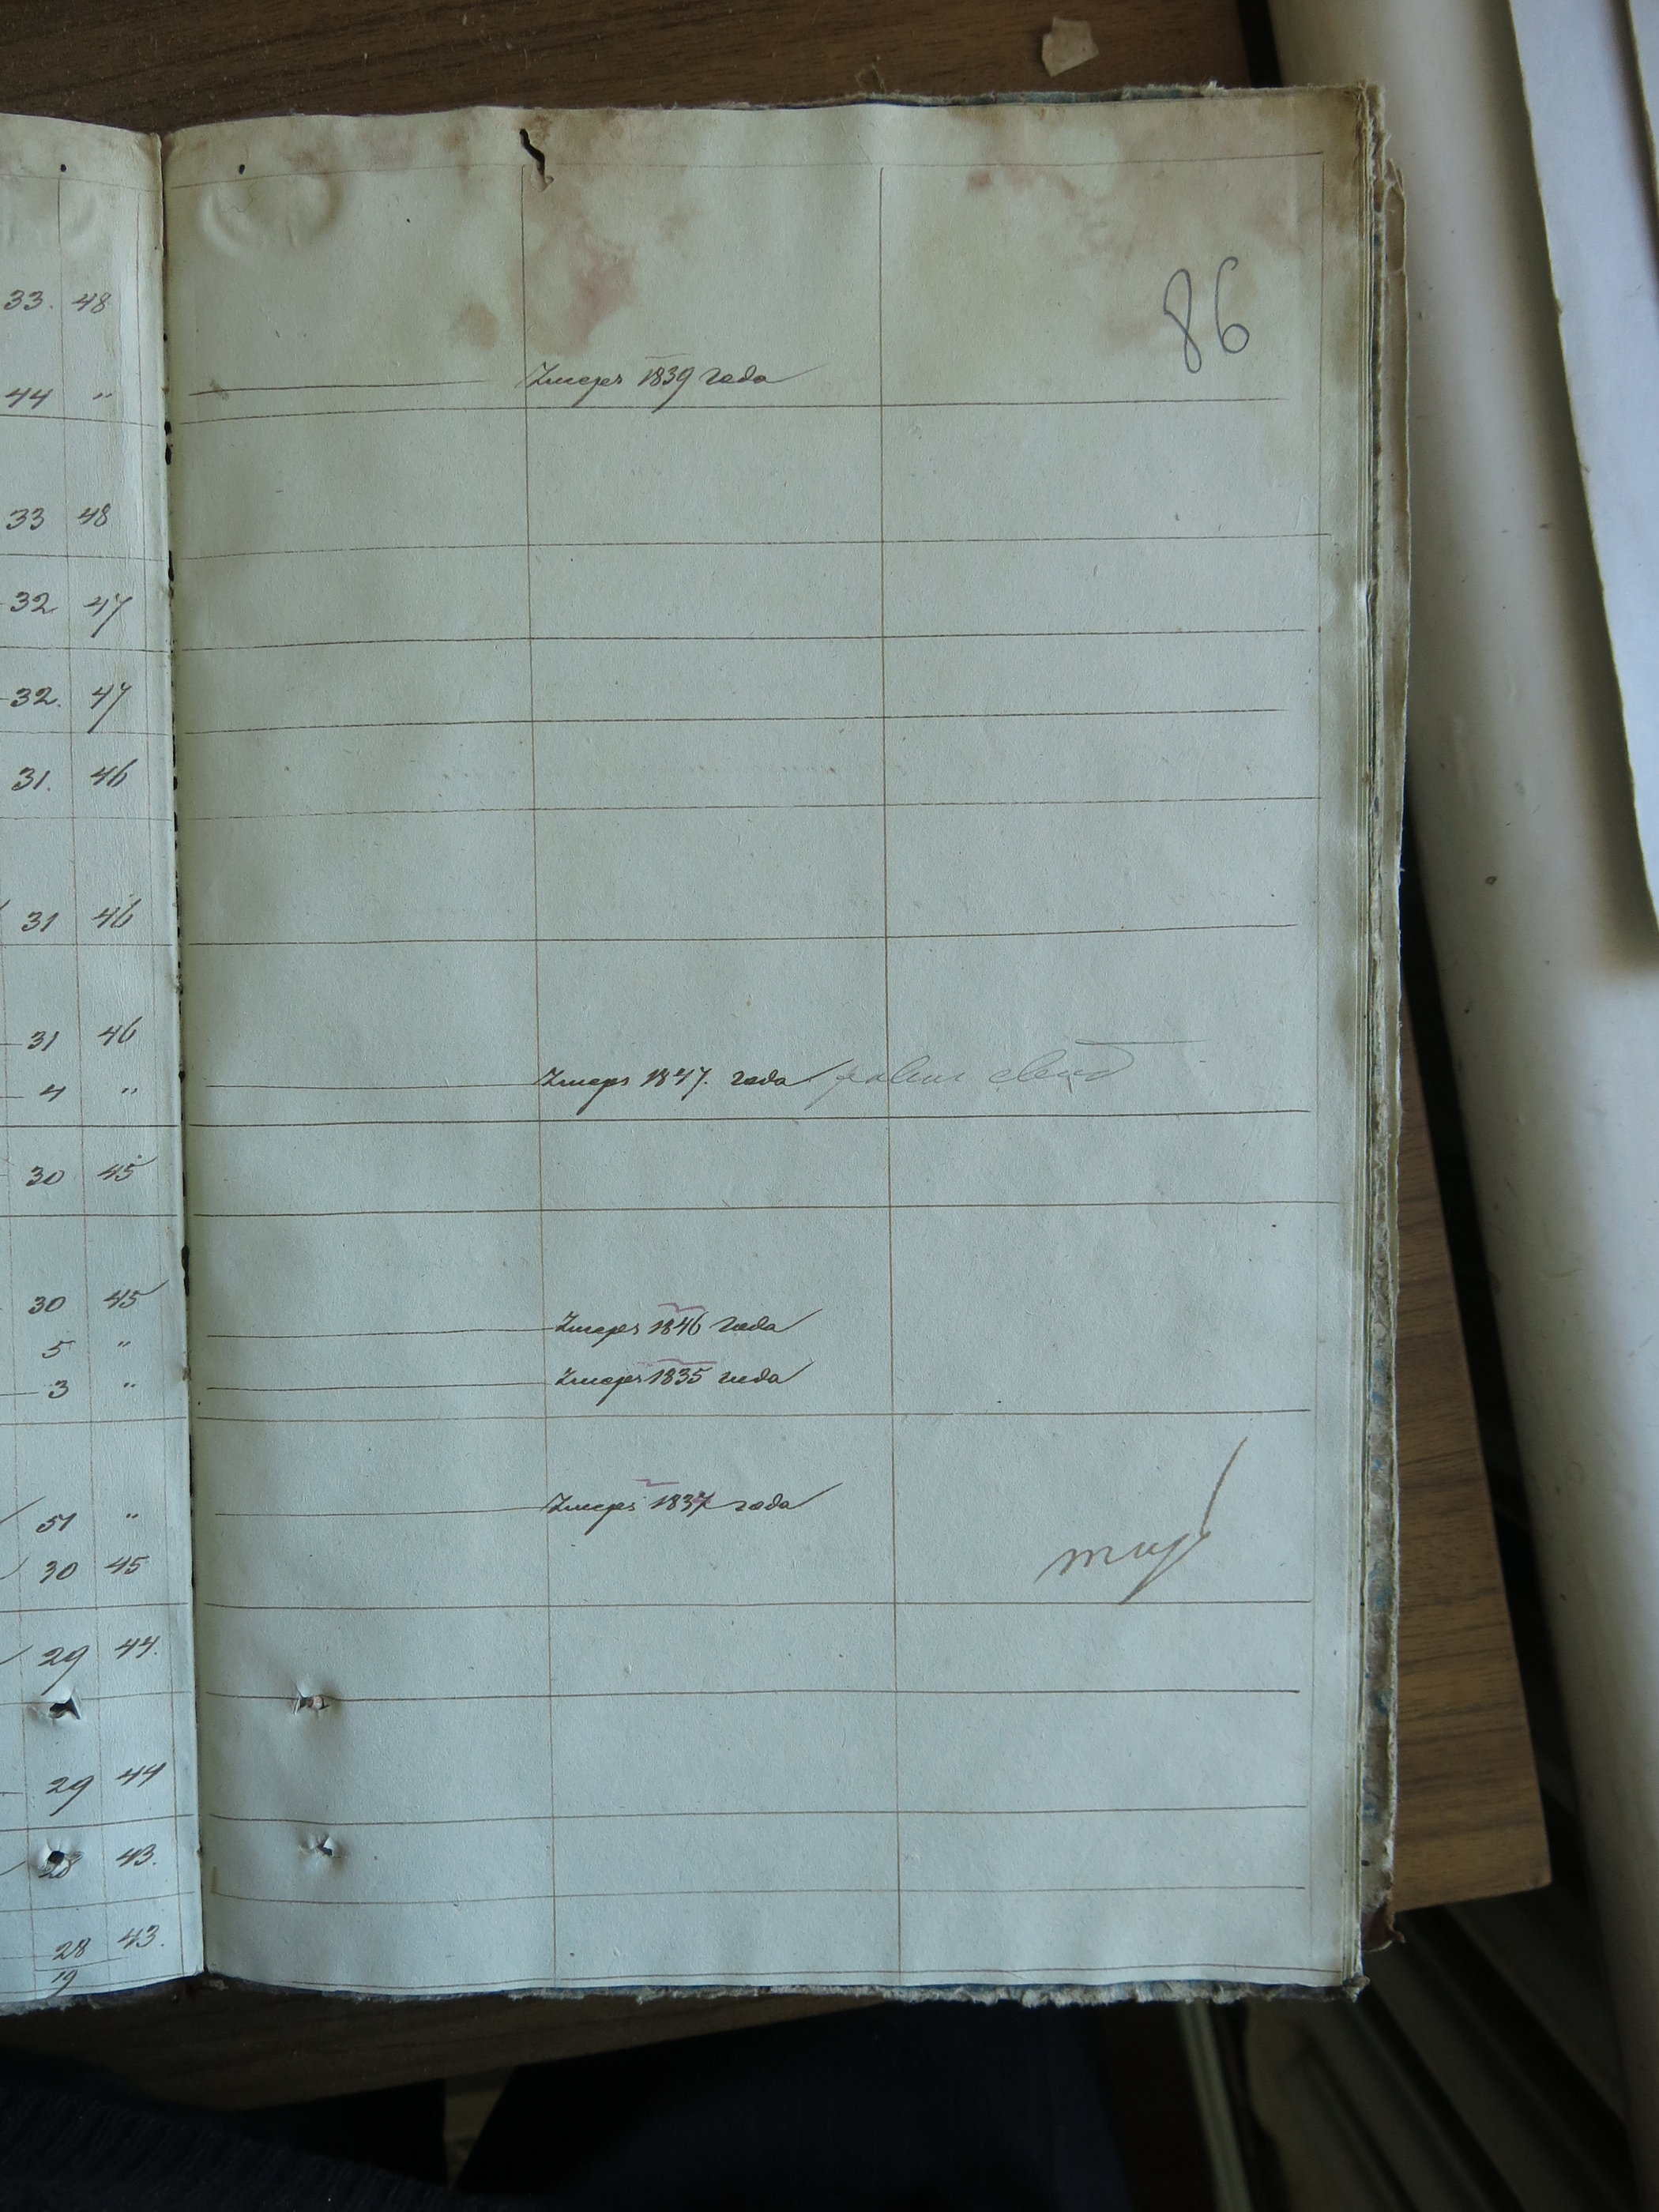 86
33. 48
44 "
Умеръ 1839 года
33 48
32 47
32. 47
31. 46
31 46
31 46
4 "
Умеръ 1847. года
30 45
30 45
5 "
Умеръ 1846 года
3 "
Умеръ 1835 года
51 "
Умеръ 1837 года
30 45
29 44.
29 44
28 43.
28 43.
19